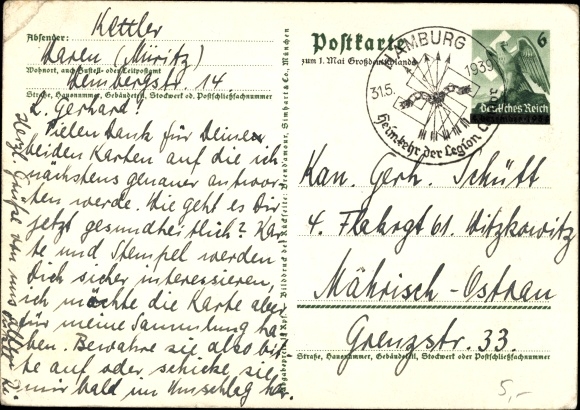 Kettler
Absender:
Waren (Müritz)
Wohnort, auch Zustell- oder Leitpostamt
Straße, Hausnummer, Gebäudeteil, Stockwerk od. Postschließfachnummer
L. Gerhard!
Vielen Dank für Deine
beiden Karten auf die ich
nächstens genauer antwor-
ten werde. Wie geht es Dir
jetzt gesundheitlich? Kar-
te und Stempel werden
Dich sicher interessieren,
ich möchte die Karte aber
für meine Sammlung ha-
ben. Bewahre sie also bit-
te auf oder schicke sie
mir bald im Umschlag her.
Herzl. Grüße von uns
Postkarte
zum 1. Mai Großdeutschlands
HAMBURG
31.5.
1939
Heimkehr der Legion
6
Deutsches Reich
Kan. Gerh. Schütt
4. Flahrgt 61. Witzkowitz
Mährisch-Ostrau
Grenzstr. 33.
Straße, Hausnummer, Gebäudeteil, Stockwerk oder Postschließfachnummer
5,-